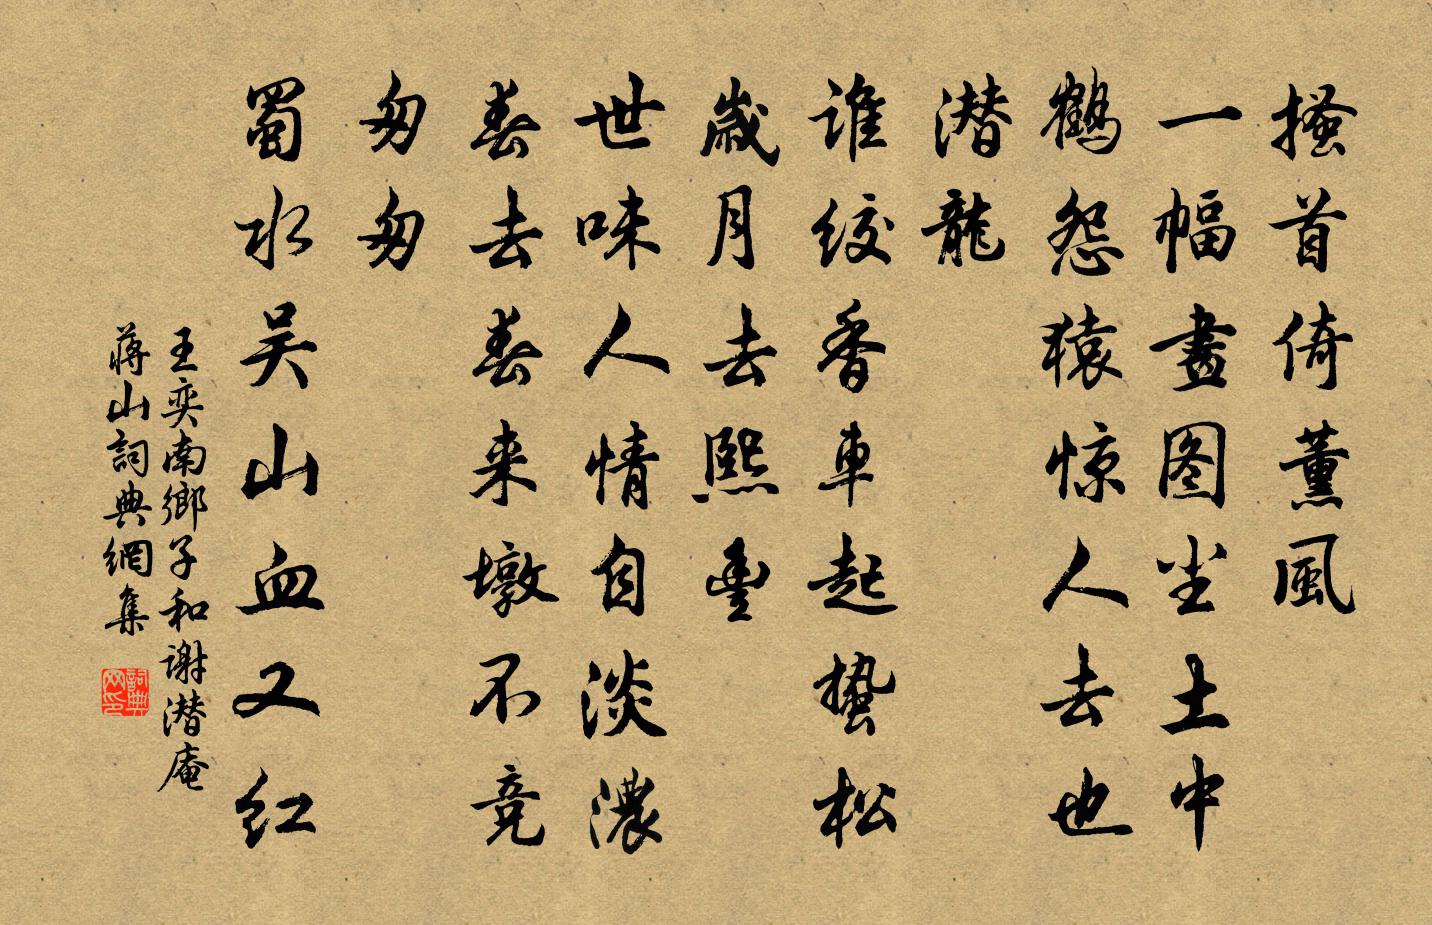 搔首倚薰風
一幅畫图尘土中
鶴怨猿惊人去也
潜龍
谁绞香車起蛰松
歲月去熙豐
世味人情自淡濃
春去春来墩不竞
匆匆
蜀水吴山血又红
王奕南鄉子和谢潜庵
蔣山詞典網集
詞典网印